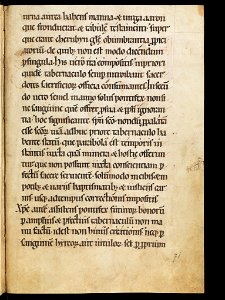 turna aurea habens manna & uirga aaron
que fronduerat & tabule testamenti super
que erant cherubyn
de quib; non est modo dicendum
p singula. his uero ita compositis
quidē tabernaculo semp introibant sacer
dotes sacrificiorū officia consummantes. In secdo
do uero semel in anno solus pontifex non si
ne sanguine quē offert p sua & ppli ignoran
tia. hoc significante spū scō nondū
esse scōrū uiā adhuc priore tabernaculo ha
bente statū que parabola est temporis in
stantis iuxta quā munera & hostie offerun
tur que non possunt iuxta conscientiam p
fectū facere seruientē solūmodo in cibis & in
potib; & uariis baptismatib; & iusticiis car
nis usq; ad tempus correctionis impositis
Xpc autē assistens pontifex futurorū bonorū
p amplius & pfectius tabernaculū non ma
nu factū .i. non huius creationis neq; p
sanguinē hircorū aut uitulorū sed p pprium